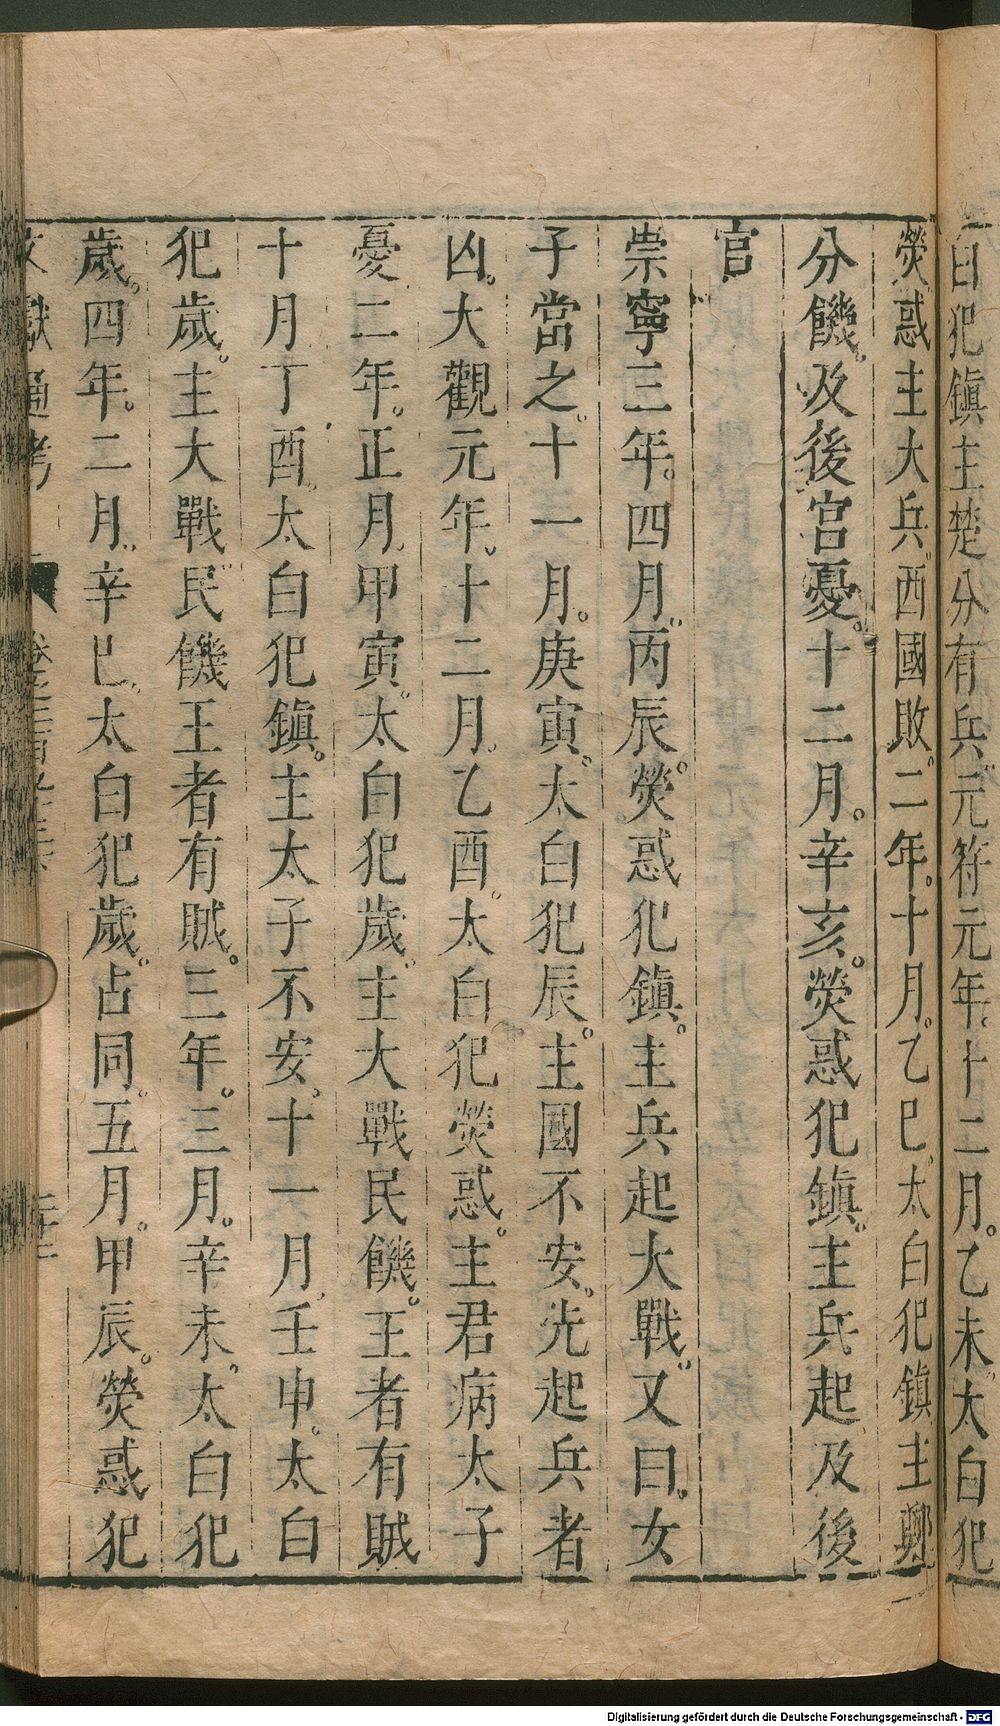 曰犯鎮主楚分有兵元符元年十二月乙未太白犯
熒惑主大兵西國敗二年十月乙巳太白犯鎮主鄭
分饑及後宫憂十二月辛亥熒惑犯鎮主兵起及後
官
崇寧三年四月丙辰熒惑犯鎮主兵起大戰又曰女
子當之十一月庚寅太白犯辰主國不安先起兵者
凶大觀元年十二月乙酉太白犯熒惑主君病太子
憂二年正月甲寅太白犯歲主大戰民饑王者有賊
十月丁酉太白犯鎮主太子不安十一月壬申太白
犯歲主大戰民饑王者有賊三年三月辛未太白犯
歲四年二月辛巳太白犯歲占同五月甲辰熒惑犯
文獻通考
Digitalisierung gefördert durch die Deutsche Forschungsgemeinschaft - DFG